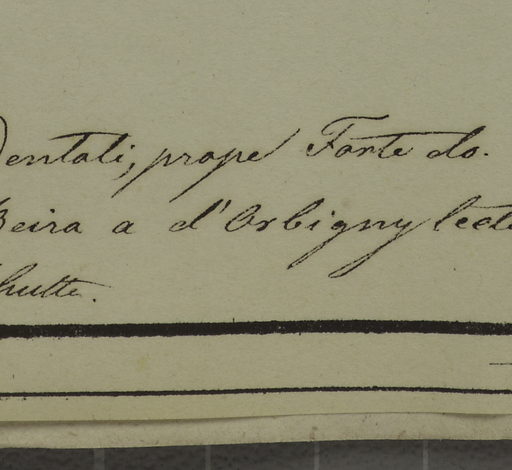 dentali, prope Forte do.
Beira a d'Orbigny lecta
hutte.